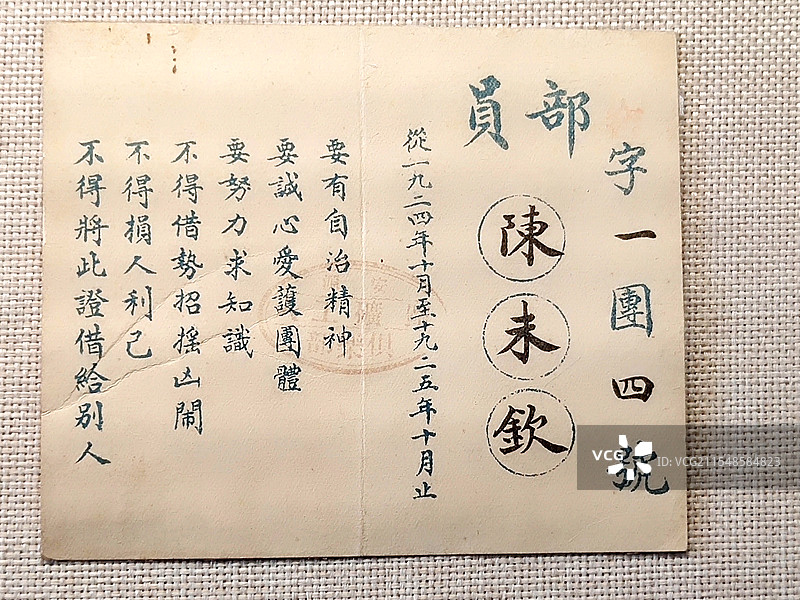 字一團四號
部員
陳未欽
從一九二四年十月至十九二五年十月止
要有自治精神
要誠心愛護團體
要努力求知識
不得借勢招搖凶鬧
不得損人利己
不得將此證借給別人
VCG
VCG
ID:VCG211548584823